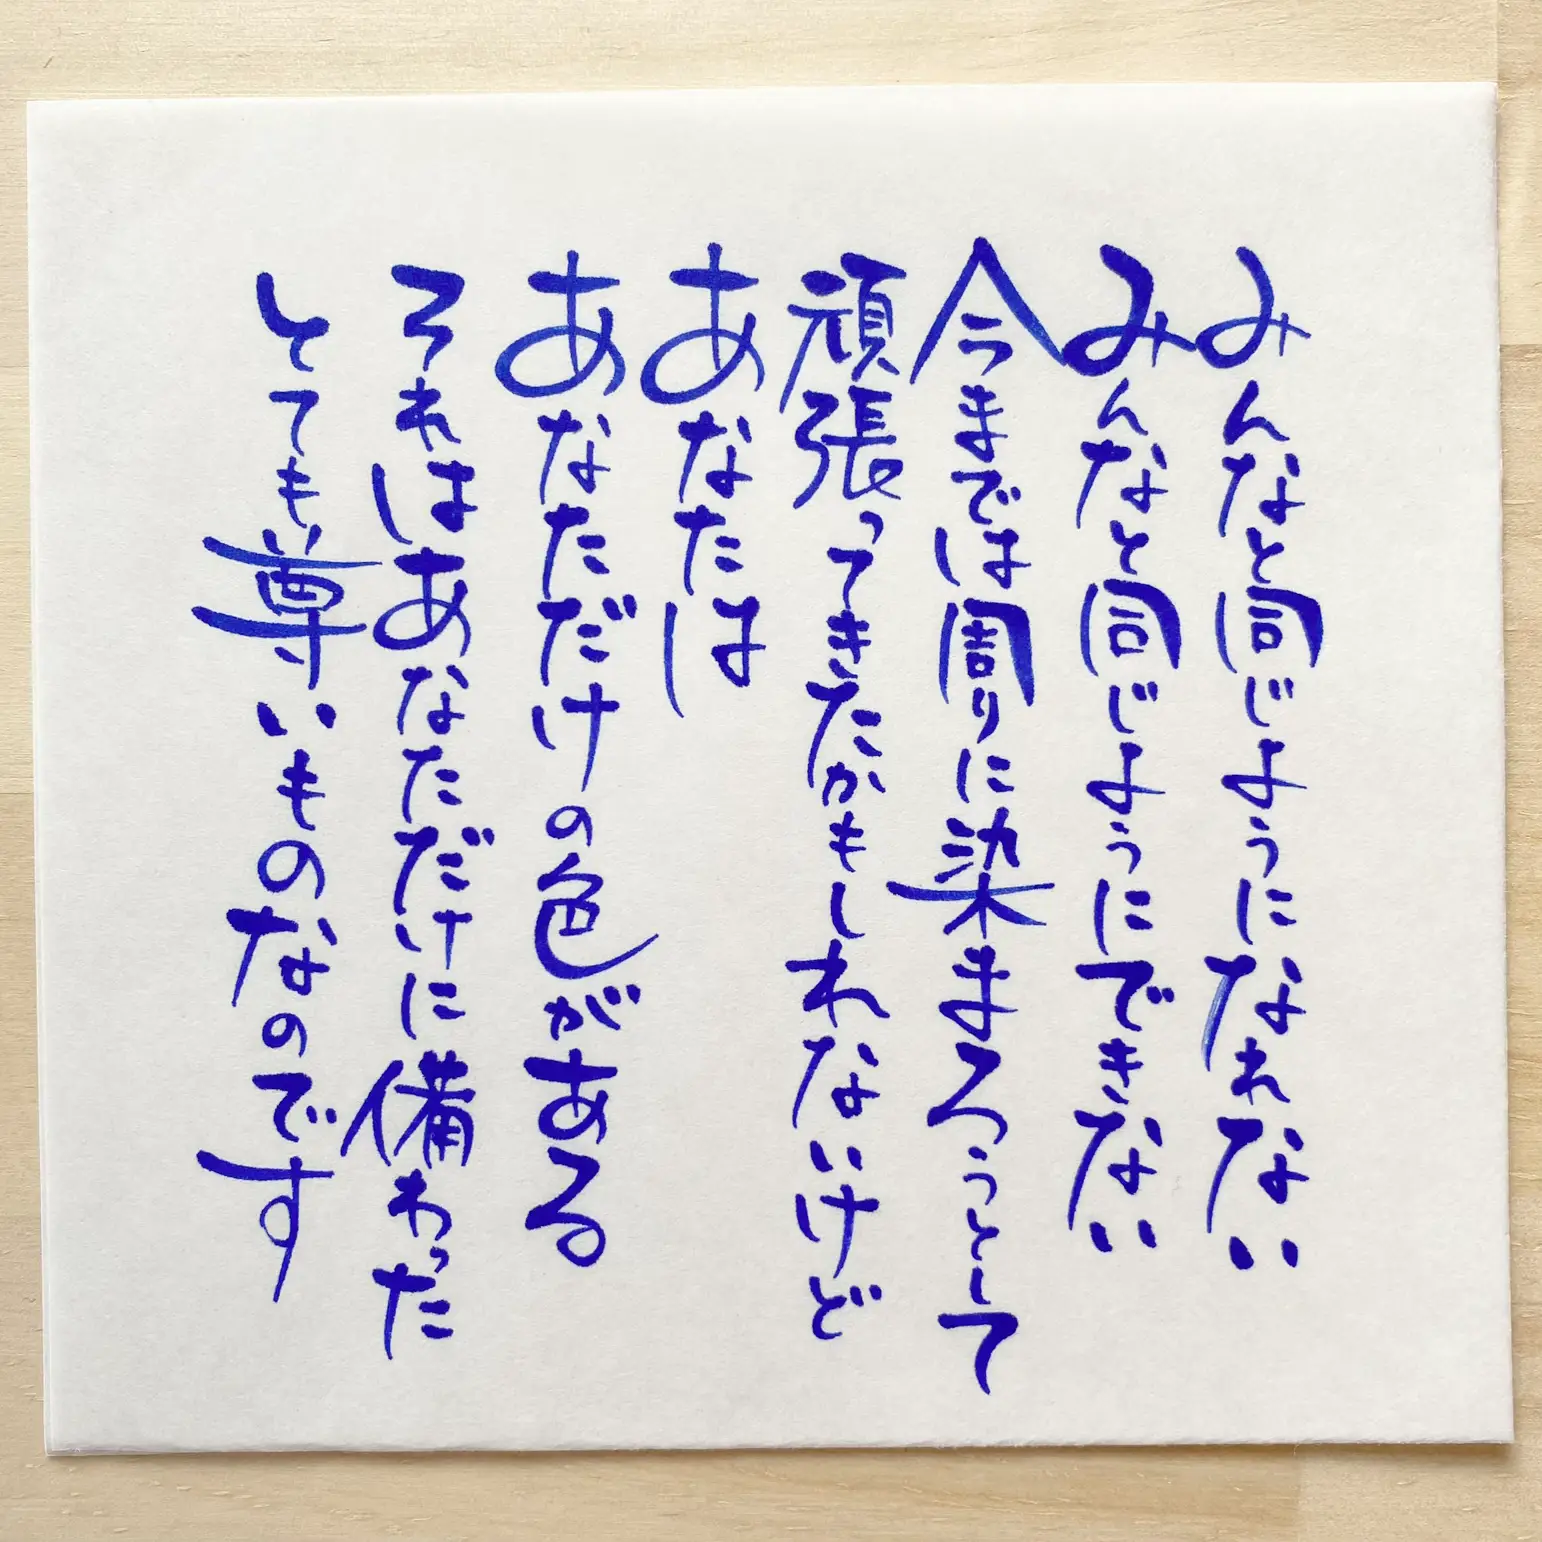 みんなと同じようになれない
みんなと同じようにできない
今までは周りに染まろうとして
頑張ってきたかもしれないけど
あなたは
あなただけの色がある
それはあなただけに備わった
とても尊いものなのです